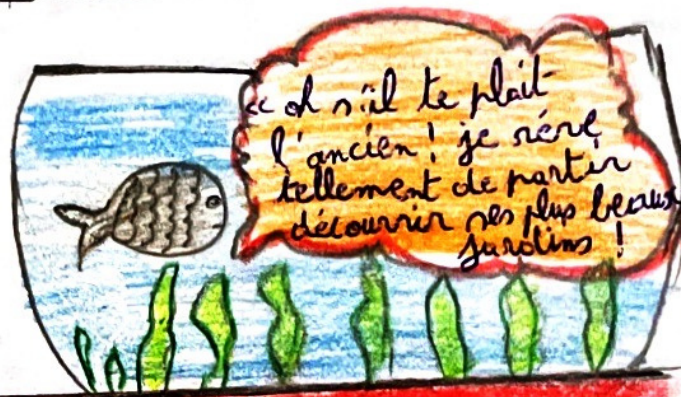 « oh s'il te plait
l'ancien ! je rêve
tellement de partir
découvrir ses plus beaux
jardins !